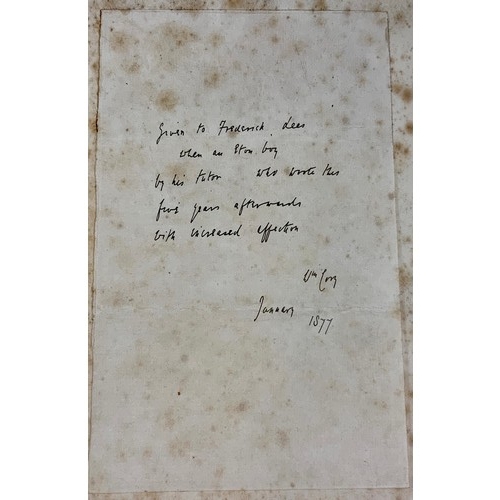 Given to Frederick Lees
when an Eton boy
by his tutor who wrote this
five years afterwards
with increased affection
Wm Cory
January
1877.